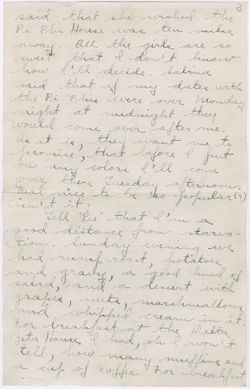 3
said that she wished the
Pi Phi House was ten miles
away. All the girls are so
sweet that I don't know
how I'll decide.
said that if my dates with
the Pi Phis were over Monday
night at midnight they
would come over after me.
As it is, they want me to
promise, that before I put
on any colors I'll come
over there Tuesday afternoon.
nice to be so popular (?)
isn't it.
Tell " that I'm a
good distance from starva-
tion. Sunday evening we
had rump roast, potatoes
and gravy, a good kind of
salad, and a dessert with
grapes, nuts, marshmallows
and whipped cream in it
For breakfast at the Delta
Zeta House I had, oh I won't
tell, how many muffins and
a cup of coffee. For breakfast